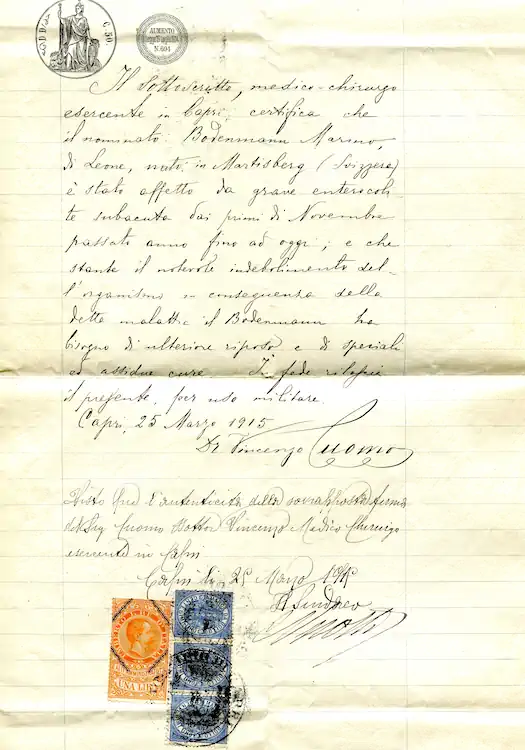 C. 50.
AUMENTO
N. 604
Il Sottoscritto, medico-chirurgo
esercente in Capri, certifica che
il nominato Bodenmann Marino,
di Leone, nato in Martisberg (Svizzera)
è stato affetto da grave enterocoli
te subacuta dai primi di Novembre
passato anno fino ad oggi; e che
stante il notevole indebolimento del-
l'organismo in conseguenza della
detta malattia il Bodenmann ha
bisogno di ulteriore riposo e di speciali
ed assidue cure. In fede rilascia
il presente, per uso militare.
Capri, 25 Marzo 1915
Dr Vincenzo Cuomo
Visto per l'autenticità della sovrapposta firma
del Sig Cuomo Dottor Vincenzo Medico Chirurgo
esercente in Capri
Capri li 25 Marzo 1915
Il Sindaco
UNA LIRA